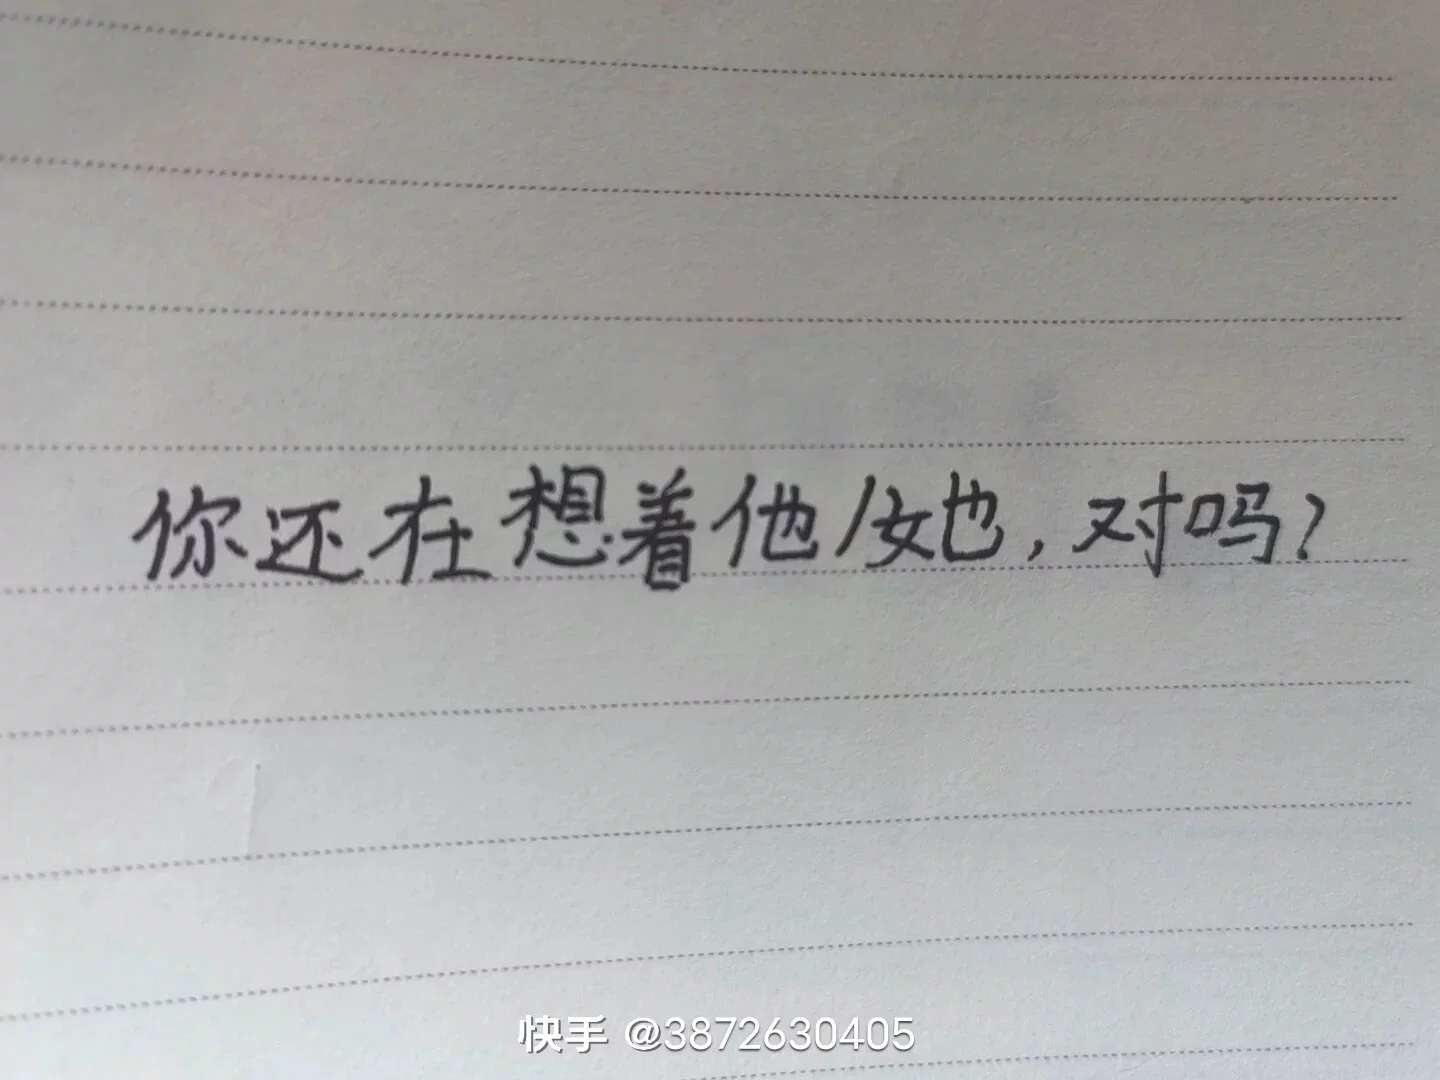 你还在想着他/她，对吗？
快手 @3872630405